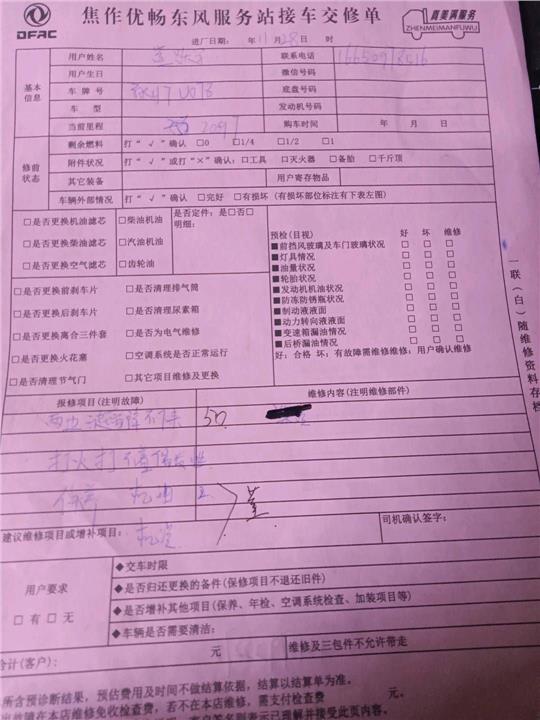 DFAC
焦作优畅东风服务站接车交修单
真美满服务
ZHENMEIMANFUWU
进厂日期: 年 11 月 28 日 时
基本信息
用户姓名 联系电话
用户生日 微信号码
车牌号 底盘号码
车型 发动机号码
当前里程 购车时间 年 月 日
修前状态
剩余燃料 打“√”确认 □0 □1/4 □1/2 □1
附件状况 打“√”或打“×”确认:□工具 □灭火器 □备胎 □千斤顶
其它装备 用户寄存物品
车辆外部情况 打“√”确认 □完好 □有损坏 (有损坏部位标注有下表左图)
□是否更换机油滤芯 □柴油机油 是否定件: 是□否□
明细:
□是否更换柴油滤芯 □汽油机油
□是否更换空气滤芯 □齿轮油
预检(目视) 好 坏 维修
■前挡风玻璃及车门玻璃状况 □ □ □
■灯具情况 □ □ □
■油量状况 □ □ □
■轮胎状况 □ □ □
■发动机机油状况 □ □ □
■防冻防锈瓶状况 □ □ □
■制动液液面 □ □ □
■动力转向液液面 □ □ □
■变速箱漏油情况 □ □ □
■后桥漏油情况 □ □ □
好: 合格 坏: 有故障需维修维修: 用户确认维修
□是否更换前刹车片 □是否清理排气筒
□是否更换后刹车片 □是否清理尿素箱
□是否更换离合三件套 □是否为电气维修
□是否更换火花塞 □空调系统是否正常运行
□是否清理节气门 □其它项目维修及更换
一联(白)随维修资料存档
报修项目(注明故障) 维修内容(注明维修部件)
50
打火打
机油
建议维修项目或增补项目:
司机确认签字:
用户要求
□有□无
◆交车时限
◆是否归还更换的备件(保修项目不退还旧件)
◆是否增补其他项目(保养、年检、空调系统检查、加装项目等)
◆车辆是否需要清洁:
合计(客户): 元 维修及三包件不允许带走
所含预诊断结果,预估费用及时间不做结算依据,结算以结算单为准。
故障在本店维修免收检查费,若不在本店维修,需支付检查费 元。